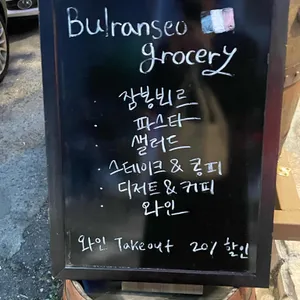 Bulranseo
grocery
· 잠봉뵈르
· 파스타
· 샐러드
· 스테이크 & 콩피
· 디저트 & 커피
· 와인
와인 Takeout 20% 할인